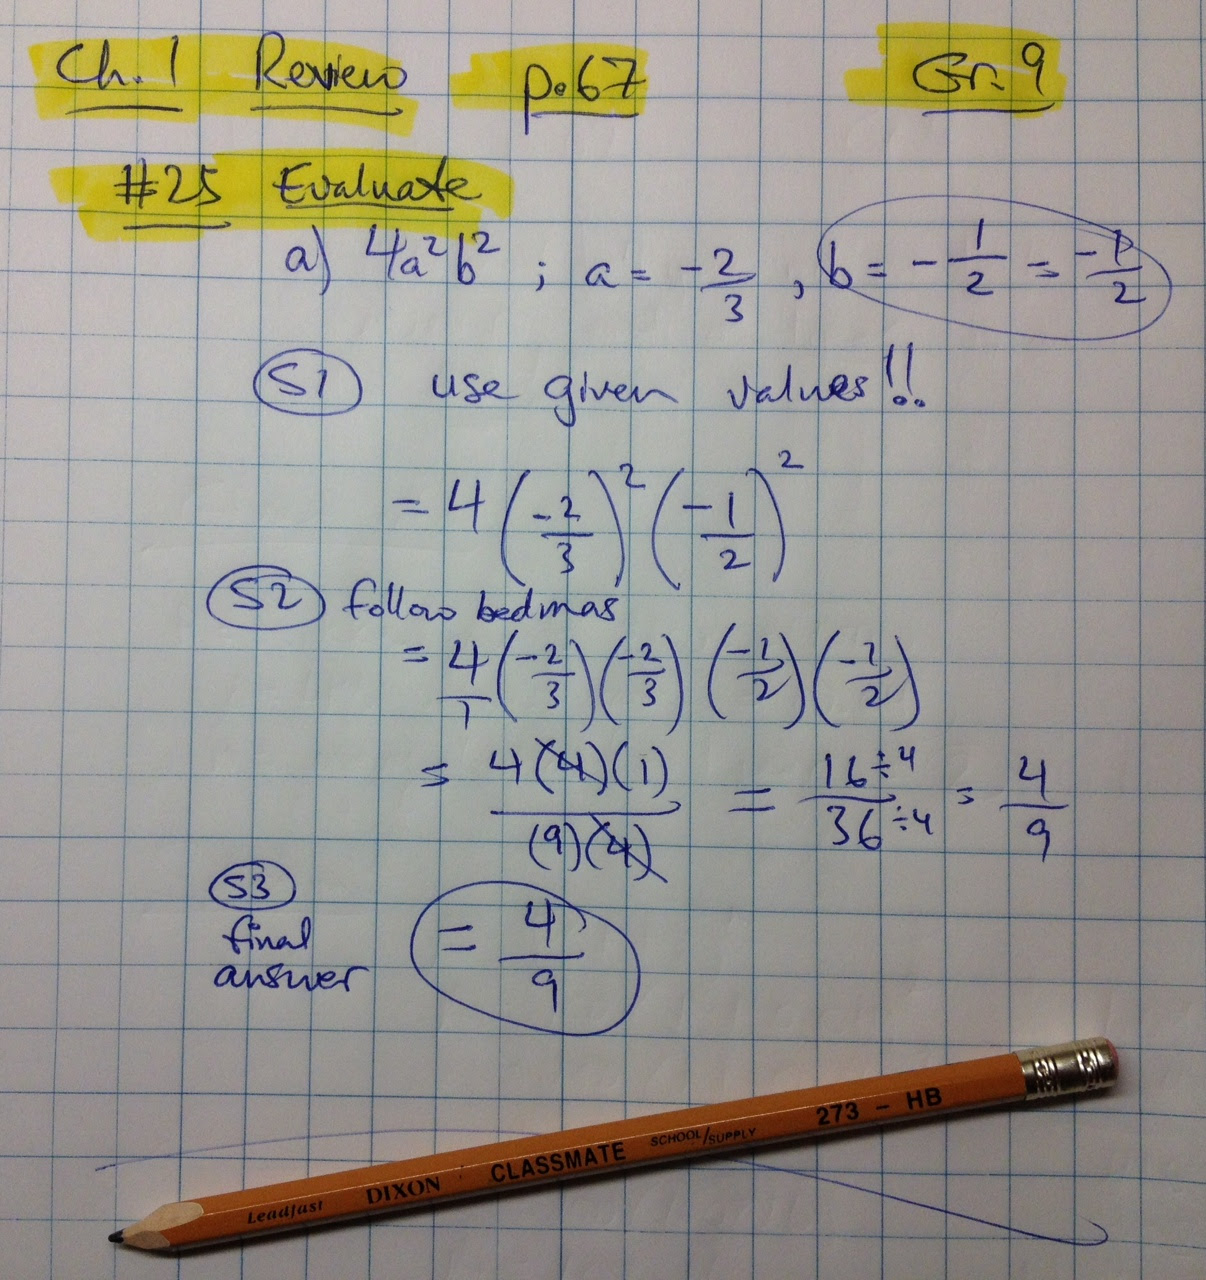 Ch.1 Review p.67 Gr.9
#25 Evaluate
a) 4a²b² ; a = -2/3 , b = -1/2 = -1/2
S1 use given values!!
= 4(-2/3)²(-1/2)²
S2 follow bedmas
= 4/1(-2/3)(-2/3)(-1/2)(-1/2)
= 4(4)(1)/(9)(4) = 16÷4/36÷4 = 4/9
S3
final
answer
= 4/9
Leadfast DIXON CLASSMATE SCHOOL/SUPPLY 273 - HB